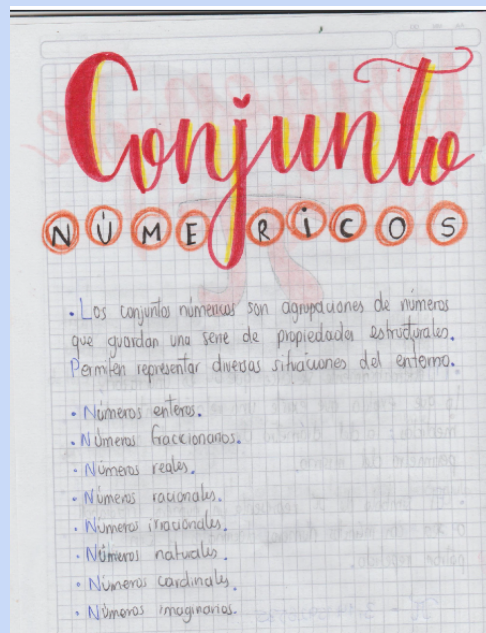 Conjunto
NÚMERICOS
• Los conjuntos númericos son agrupaciones de números
que guardan una serie de propiedades estructurales.
Permiten representar diversas situaciones del entorno.
• Números enteros.
• Números fraccionarios.
• Números reales.
• Números racionales.
• Números irracionales.
• Números naturales.
• Números cardinales.
• Números imaginarios.